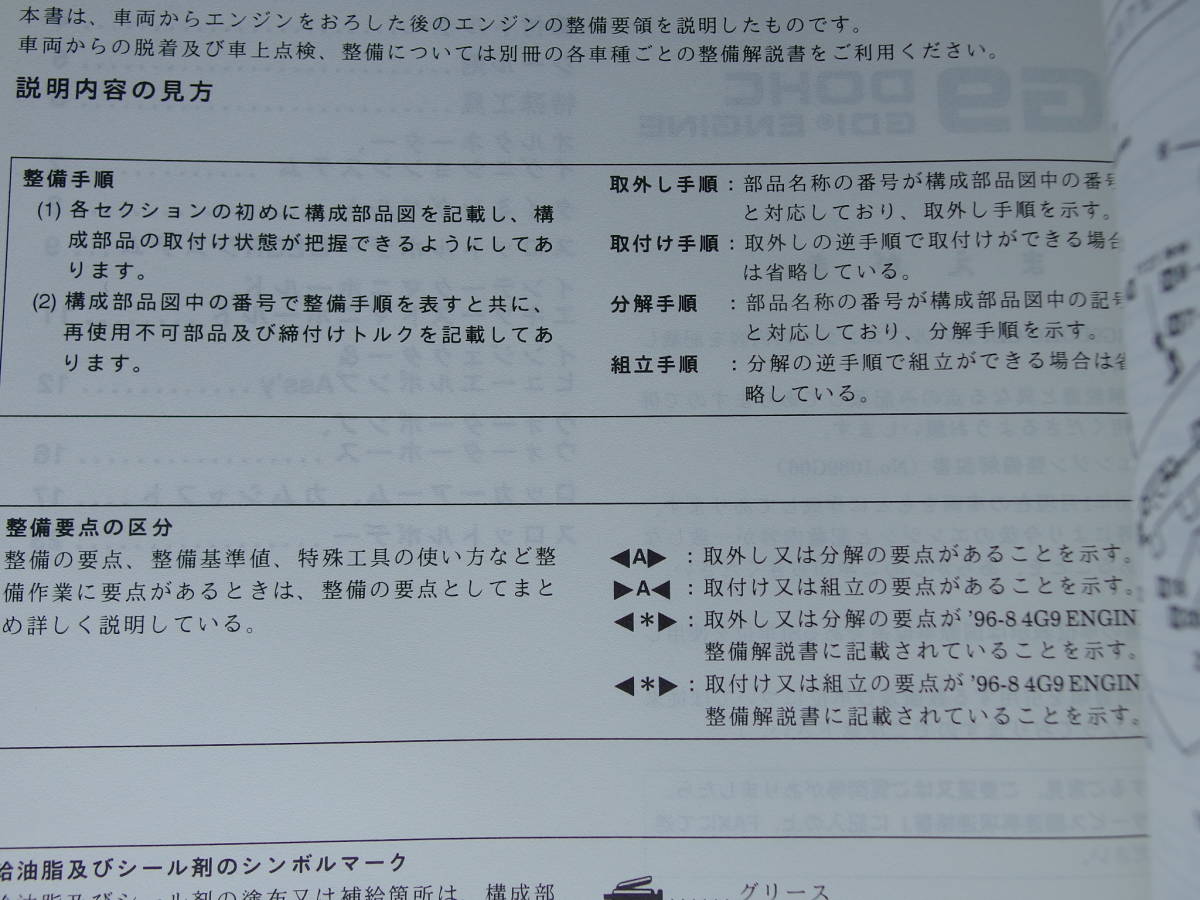 本書は、車両からエンジンをおろした後のエンジンの整備要領を説明したものです。
車両からの脱着及び車上点検、整備については別冊の各車種ごとの整備解説書をご利用ください。
説明内容の見方
整備手順
(1) 各セクションの初めに構成部品図を記載し、構
成部品の取付け状態が把握できるようにしてあ
ります。
(2) 構成部品図中の番号で整備手順を表すと共に、
再使用不可部品及び締付けトルクを記載してあ
ります。
取外し手順 : 部品名称の番号が構成部品図中の番号
と対応しており、取外し手順を示す。
取付け手順 : 取外しの逆手順で取付けができる場合
は省略している。
分解手順 : 部品名称の番号が構成部品図中の記号
と対応しており、分解手順を示す。
組立手順 : 分解の逆手順で組立ができる場合は省
略している。
整備要点の区分
整備の要点、整備基準値、特殊工具の使い方など整
備作業に要点があるときは、整備の要点としてまと
め詳しく説明している。
◀A▶ : 取外し又は分解の要点があることを示す。
▶A◀ : 取付け又は組立の要点があることを示す。
◀*▶ : 取外し又は分解の要点が '96-8 4G9 ENGIN
整備解説書に記載されていることを示す。
◀*▶ : 取付け又は組立の要点が '96-8 4G9 ENGIN
整備解説書に記載されていることを示す。
給油脂及びシール剤のシンボルマーク
給油脂及びシール剤の塗布又は補給箇所は、構成部
グリース